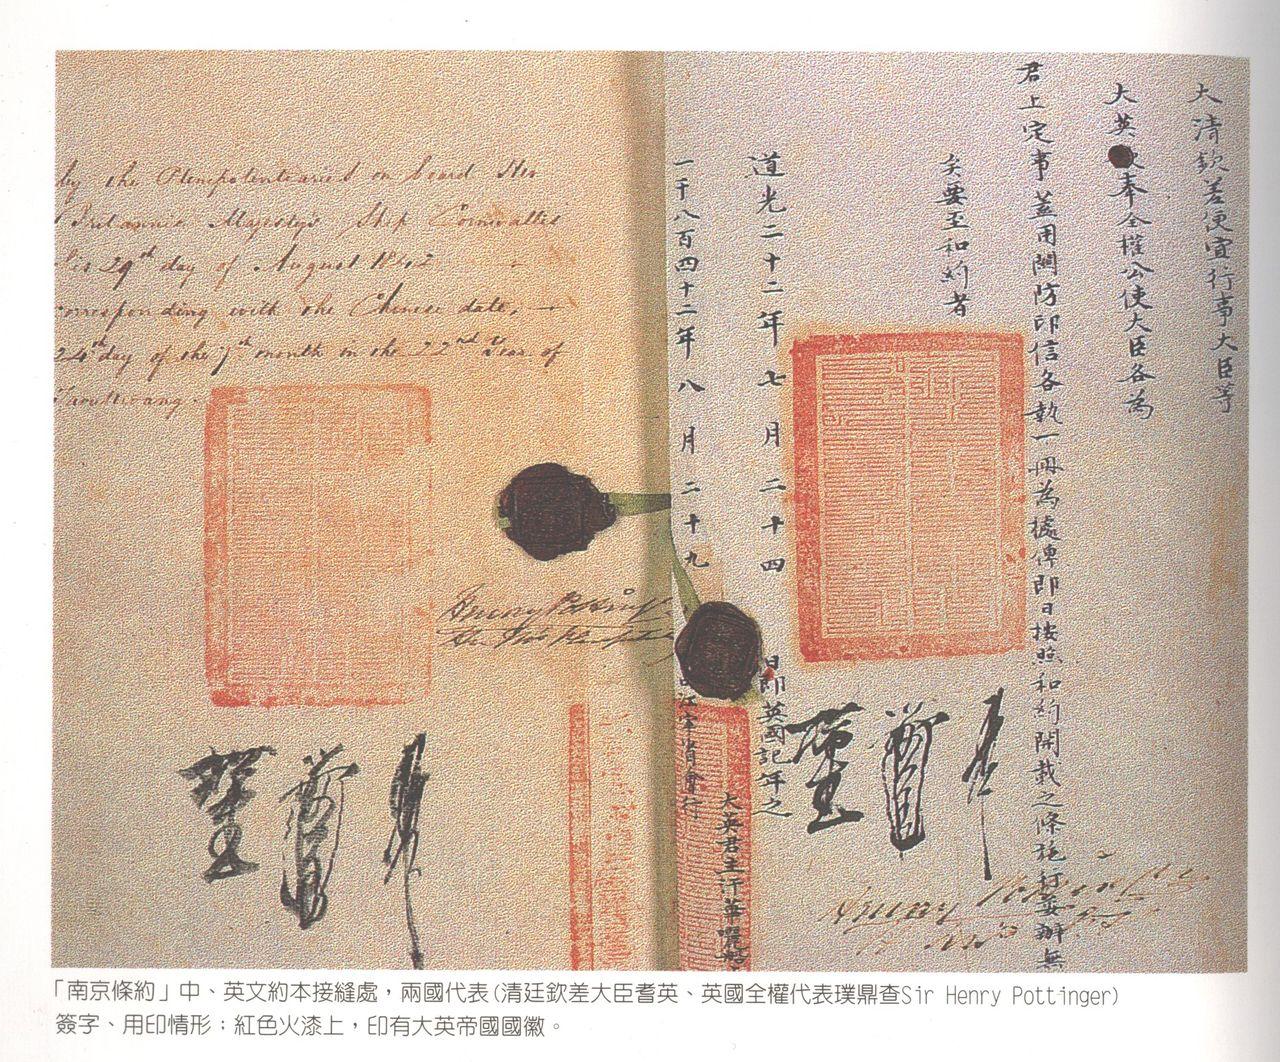 by the Plenipotentiaries on board Her
Britannic Majesty's Ship Cornwallis
this 29th day of August 1842
corresponding with the Chinese date,
24th day of the 7th month in the 22nd Year of
Taoukwang.
大清欽差便宜行事大臣等
大英欽奉全權公使大臣各為
君上定事蓋用關防印信各執一冊為據俾即日按照和約開載之條施行妥辦無
矣要至和約者
道光二十二年七月二十四日即英國記年之
一千八百四十二年八月二十九
江寧省會行
大英君主汗華囉船
Henry Pottinger
「南京條約」中、英文約本接縫處，兩國代表(清廷欽差大臣耆英、英國全權代表璞鼎查Sir Henry Pottinger)
簽字、用印情形；紅色火漆上，印有大英帝國國徽。